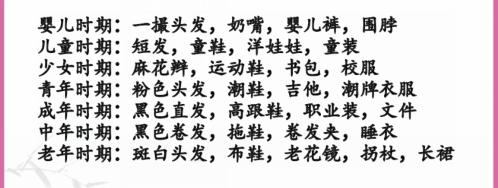 婴儿时期：一撮头发，奶嘴，婴儿裤，围脖
儿童时期：短发，童鞋，洋娃娃，童装
少女时期：麻花辫，运动鞋，书包，校服
青年时期：粉色头发，潮鞋，吉他，潮牌衣服
成年时期：黑色直发，高跟鞋，职业装，文件
中年时期：黑色卷发，拖鞋，卷发夹，睡衣
老年时期：斑白头发，布鞋，老花镜，拐杖，长裙